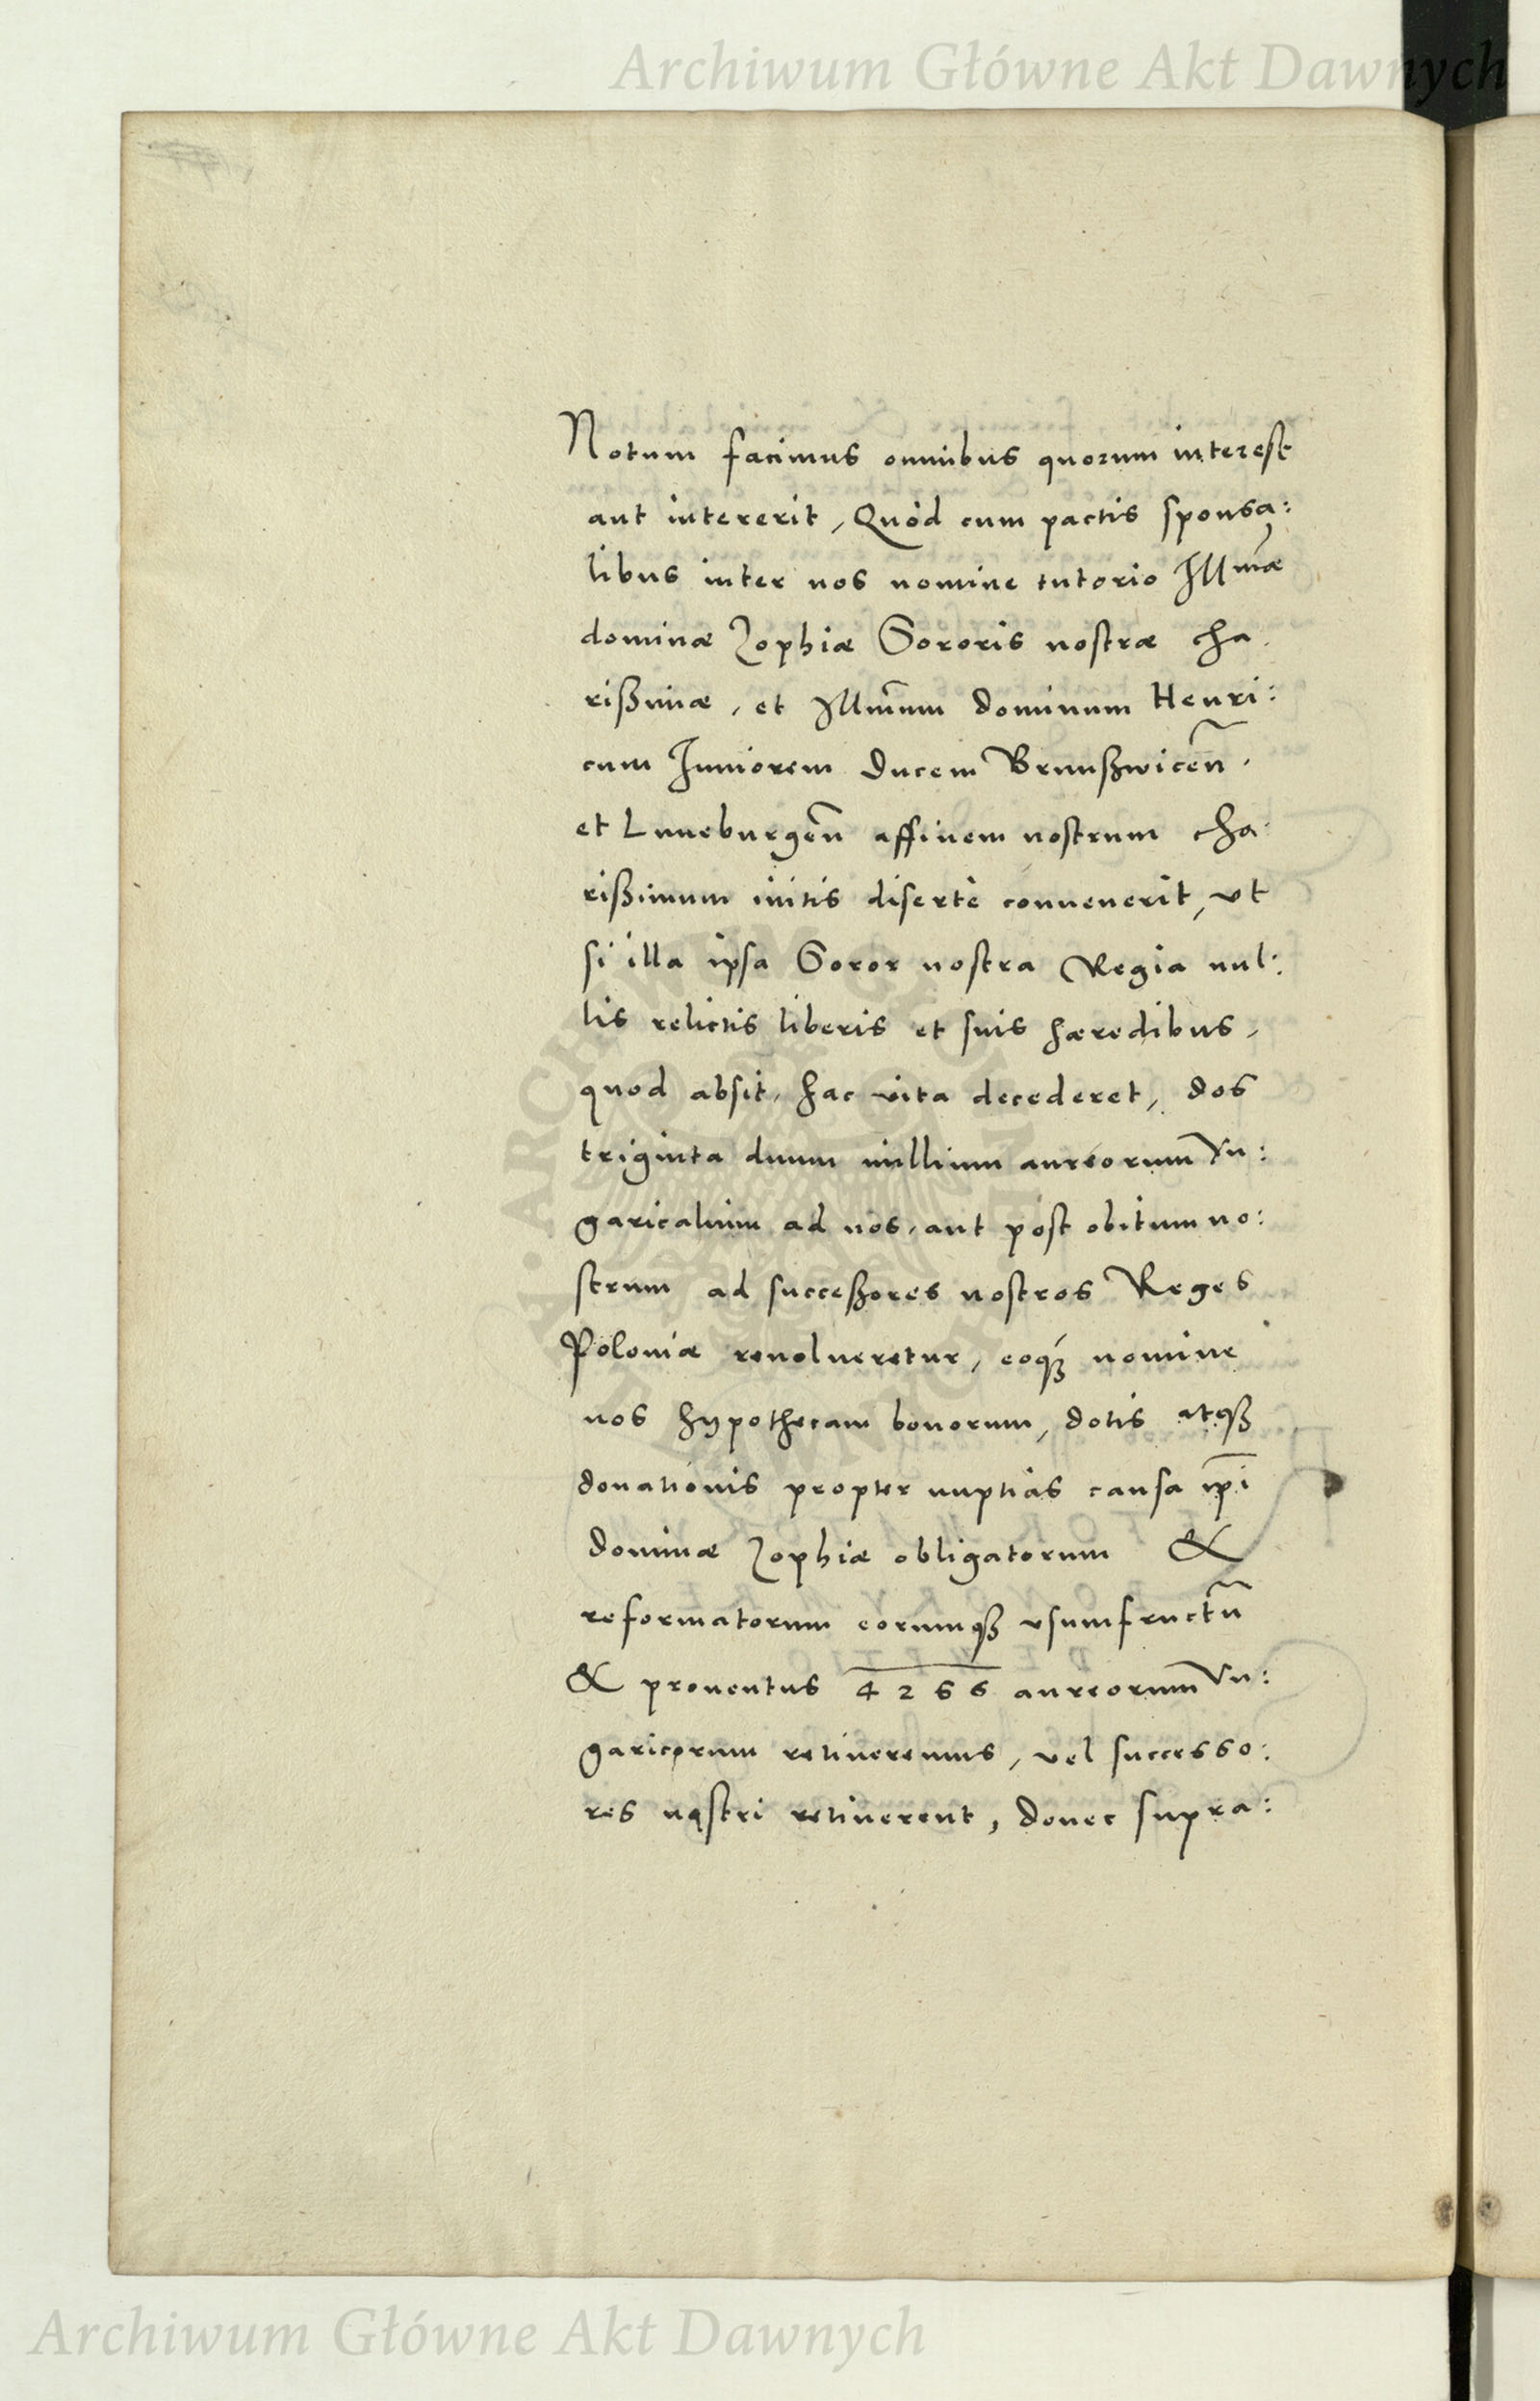 Archiwum Główne Akt Dawnych
Notum facimus omnibus quorum interest
aut intererit, Quòd cum pactis sponsa:
libus inter nos nomine tutorio Illm̃æ
dominæ Zophiæ Sororis nostræ cha.
rißimæ, et Illm̃um dominum Henri:
cum Iuniorem Ducem Brunßwiceñ.
et Luneburgeñ affinem nostrum cha:
rißimum initis disertè conuenerit, vt
si illa ipsa Soror nostra Regia nul:
lis relictis liberis et suis hæredibus,
quod absit, hac vita decederet, dos
triginta duum millium aureorum Vn:
garicalium ad nos, aut post obitum no:
strum ad succeßores nostros Reges
Poloniæ reuolueretur, eoqꝫ nomine
nos hypothecam bonorum, dotis atqꝫ
donationis propter nuptias causa ip̃i
dominæ Zophiæ obligatorum &
reformatorum eorumqꝫ vsumfructũ
& prouentus 4266 aureorum Vn:
garicorum retineremus, vel successo:
res nostri retinerent, donec supra:
Archiwum Główne Akt Dawnych